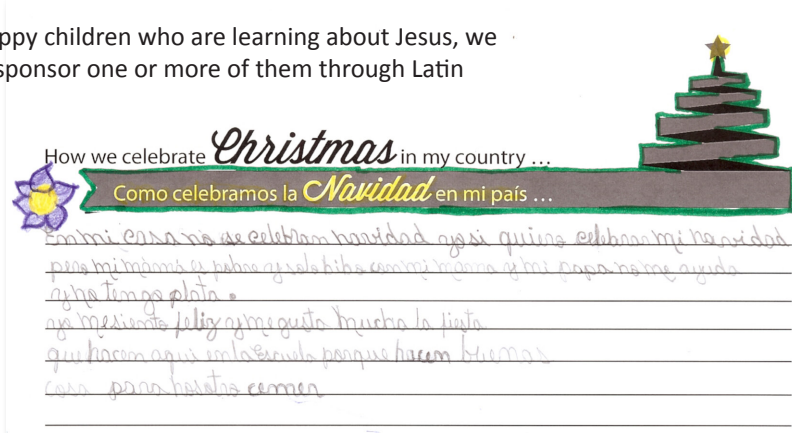 ppy children who are learning about Jesus, we
sponsor one or more of them through Latin
How we celebrate Christmas in my country ...
Como celebramos la Navidad en mi país ...
En mi casa no se celebran navidad yo si quiero celebrar mi navidad
pero mi mamá es pobre y solo bibo con mi mama y mi papa no me ayuda
y no tengo plata.
yo me siento feliz y me gusta mucho la fiesta
que hacen aqui en la Escuela porque hacen buenas
cosa para nosotro comer